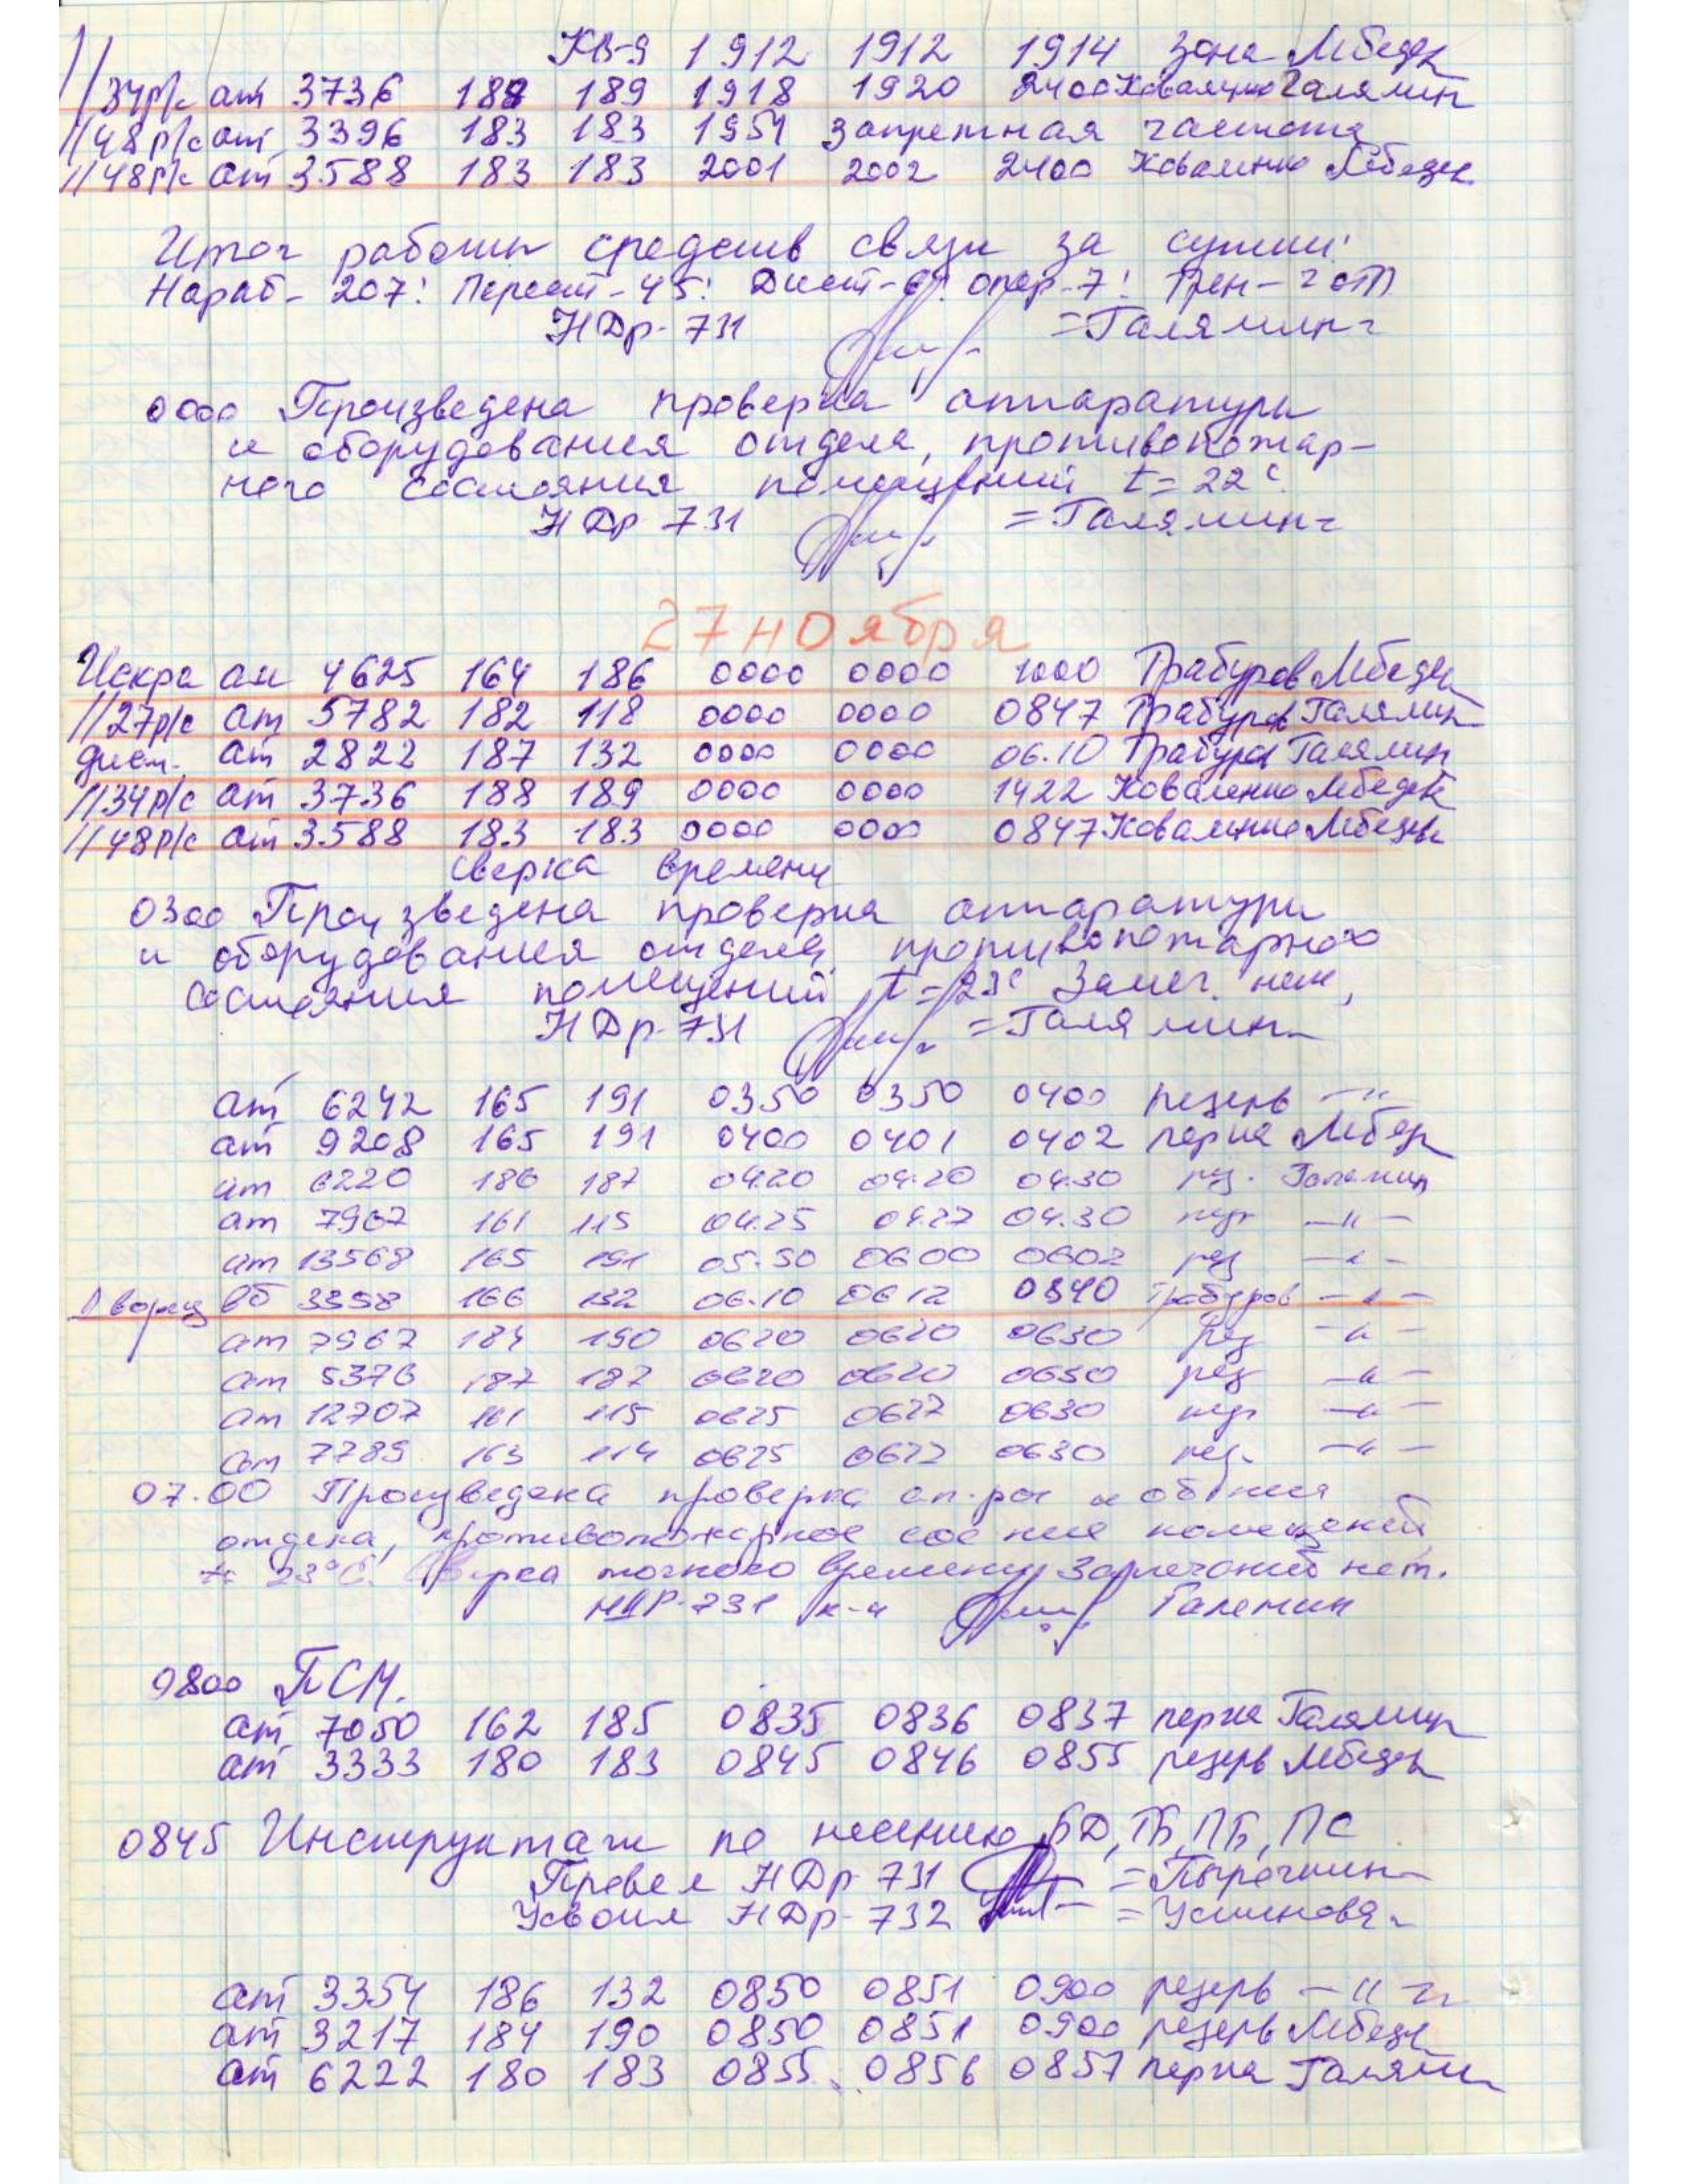 КВ-Я 1912 1912 1914 Зона Лебедь
//34р/с ат 3736 188 189 1918 1920 2400 Коваленко Галямин
//48р/с ат 3396 183 183 1954 запретная частота
//48р/с ат 3588 183 183 2001 2002 2400 Коваленко Лебедь
Итог работы средств связи за сутки:
Нараб- 207: Перест-45: Дист-6: опер-7: Трен-2
НДр-731 =Галямин=
0000 Произведена проверка аппаратуры
и оборудования отдела, противопожар-
ного состояния помещений t=22°
НДр 731 =Галямин=
27 ноября
Искра ат 4625 164 186 0000 0000 1000 Трабуров Лебедь
//27р/с ат 5782 182 118 0000 0000 0847 Трабуров Галямин
дист. ат 2822 187 132 0000 0000 06.10 Трабуров Галямин
//34р/с ат 3736 188 189 0000 0000 1422 Коваленко Лебедь
//48р/с ат 3588 183 183 0000 0000 0847 Коваленко Лебедь
сверка времени
0300 Произведена проверка аппаратуры
и оборудования отдела, противопожарного
состояния помещений t=23° Замеч. нет,
НДр-731 =Галямин=
ат 6242 165 191 0350 0350 0400 резерв —"—
ат 9208 165 191 0400 0401 0402 перка Лебедь
ат 6220 186 187 04.20 04.20 04.30 рез. Галямин
ат 7967 161 115 04.25 04.27 04.30 —"—
ат 13568 165 191 05.50 0600 0602 рез —"—
Дворец вб 3358 166 132 06.10 0612 0840 Трабуров —"—
ат 7967 184 190 0620 0620 0630 рез —"—
ат 5376 187 187 0620 0620 0650 рез —"—
ат 12707 161 115 0625 0627 0630 —"—
ат 7789 163 114 0625 0627 0630 рез. —"—
07.00 Произведена проверка ап-ры и об-ния
отдела, противопожарное сос-ние помещений
t= 23°С. Сверка точного времени. Замечаний нет.
НДР-731 к-н Галямин
0800 ПСМ.
ат 7050 162 185 0835 0836 0837 перка Галямин
ат 3333 180 183 0845 0846 0855 резерв Лебедь
0845 Инструктаж по несению БД, ТБ, ПБ, ПС
Провел НДр 731 =Пырочкин=
Усвоил НДр-732 =Устинова=
ат 3354 186 132 0850 0851 0900 резерв —"—
ат 3217 184 190 0850 0851 0900 резерв Лебедь
ат 6222 180 183 0855 0856 0857 перка Галямин